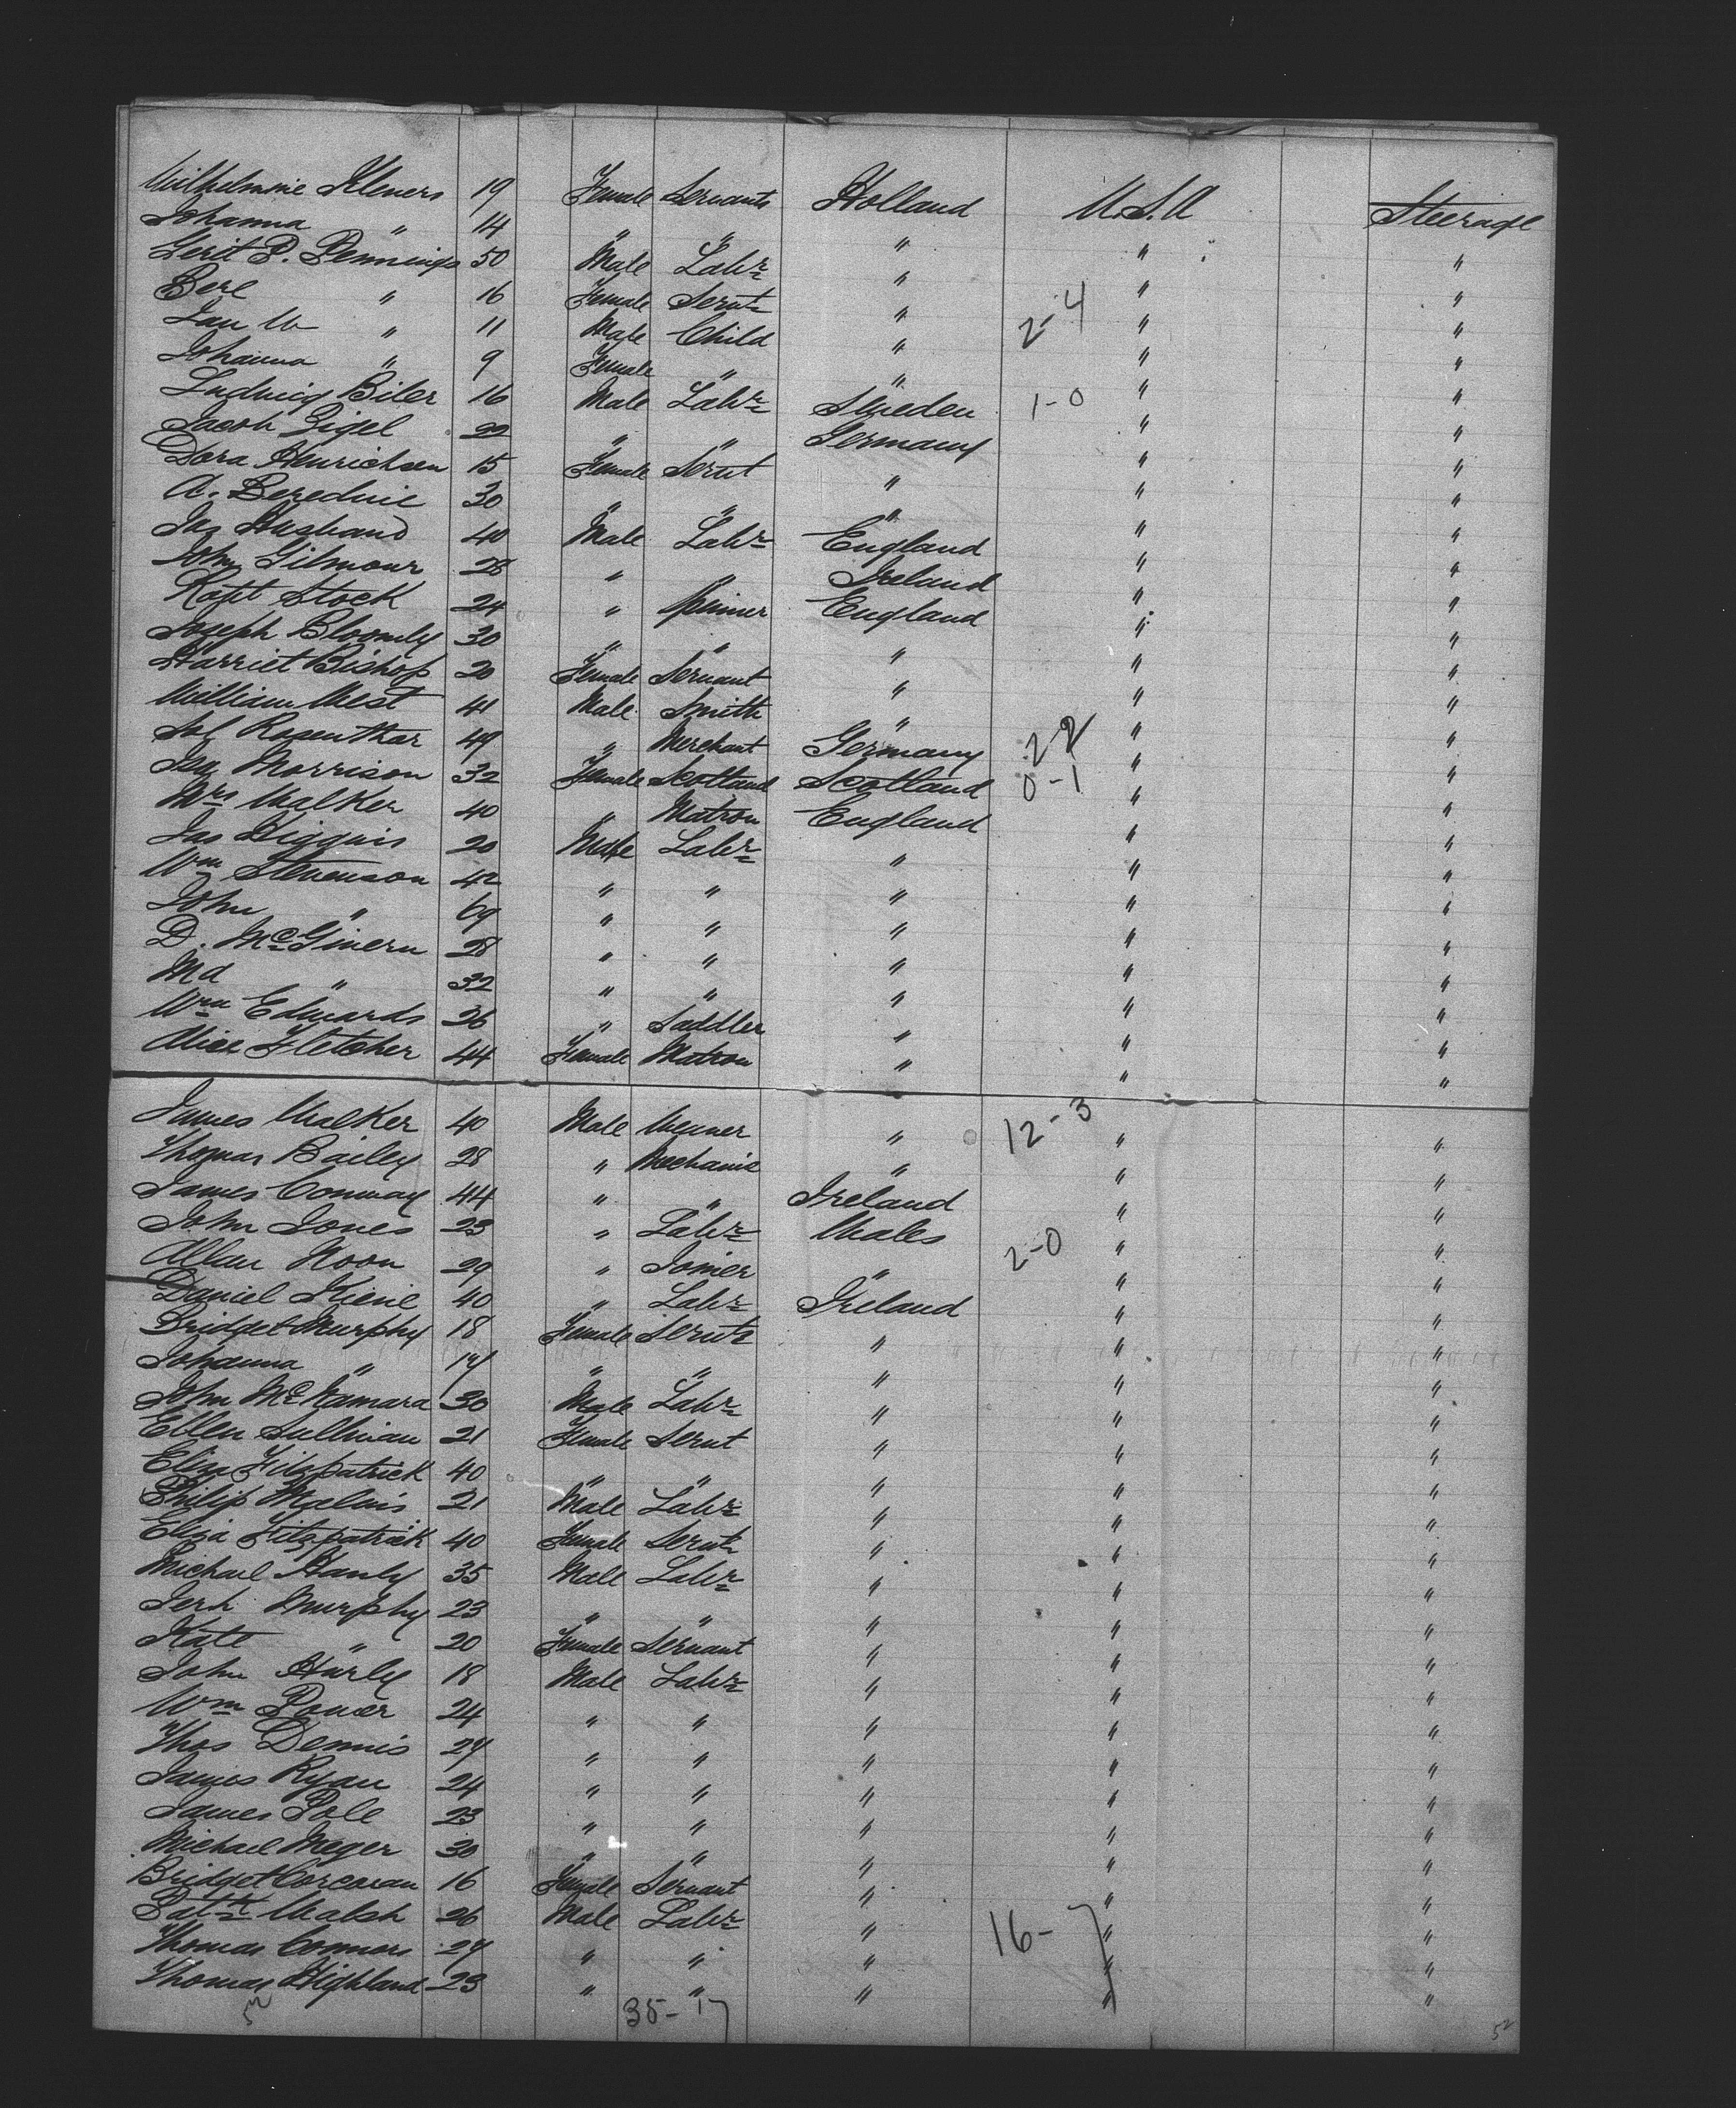 Wilhelmine Kleners 19 Female Servants Holland U.S.A Steerage
Johanna " 14 " " " " "
Gerit P. Pennings 50 Male Labr " " "
Bere " 16 Female Servt " " "
Jan W " 11 Male Child " 2-4 " "
Johanna " 9 Female " " " "
Ludwig Biler 16 Male Labr Sweden 1-0 " "
Jacob Zigel 22 " " Germany " "
Dora Henrichsen 15 Female Servt " " "
A. 30 " " " " "
Jas Husband 40 Male Labr England " "
John Gilmour 28 " " Ireland " "
Robt Stock 24 " Miner England " "
Joseph Bloomly 30 " " " " "
Harriet Bishop 20 Female Servant " " "
William West 41 Male Smith " " "
Sol Rosenthar 49 " Merchant Germany 2-2 " "
Morrison 32 Female Scotland Scotland 0-1 " "
Mrs Walker 40 " Matron England " "
Jas Higgins 20 Male Labr " " "
Wm Stevenson 42 " " " " "
John " 69 " " " " "
D. McGinern 28 " " " " "
Md " 32 " " " " "
Wm Edwards 26 " Saddler " " "
Alice Fletcher 44 Female Matron " " "
James Walker 40 Male Weaver " 12-3 " "
Thomas Bailey 28 " Mechanic " " "
James Conway 44 " " Ireland " "
John Jones 23 " Labr Wales " "
Allan Noon 29 " Joiner " 2-0 " "
Daniel Kiene 40 " Labr Ireland " "
Bridget Murphy 18 Female Servts " " "
Johanna " 17 " " " " "
John McNamara 30 Male Labr " " "
Ellen Sullivan 21 Female Servt " " "
Eliza Fitzpatrick 40 " " " " "
Philip Malins 21 Male Labr " " "
Eliza Fitzpatrick 40 Female Servt " " "
Michael Hanly 35 Male Labr " " "
Jerh Murphy 23 " " " " "
Kate " 20 Female Servant " " "
John Hurly 18 Male Labr " " "
Wm Power 24 " " " " "
Thos Dennis 27 " " " " "
James Ryan 24 " " " " "
James Pole 23 " " " " "
Michael Meger 30 " " " " "
Bridget Corcoran 16 Female Servant " " "
Patk Walsh 26 Male Labr " 16-7 " "
Thomas Connors 27 " " " " "
Thomas Highland 23 " " " " "
52 35-17 52